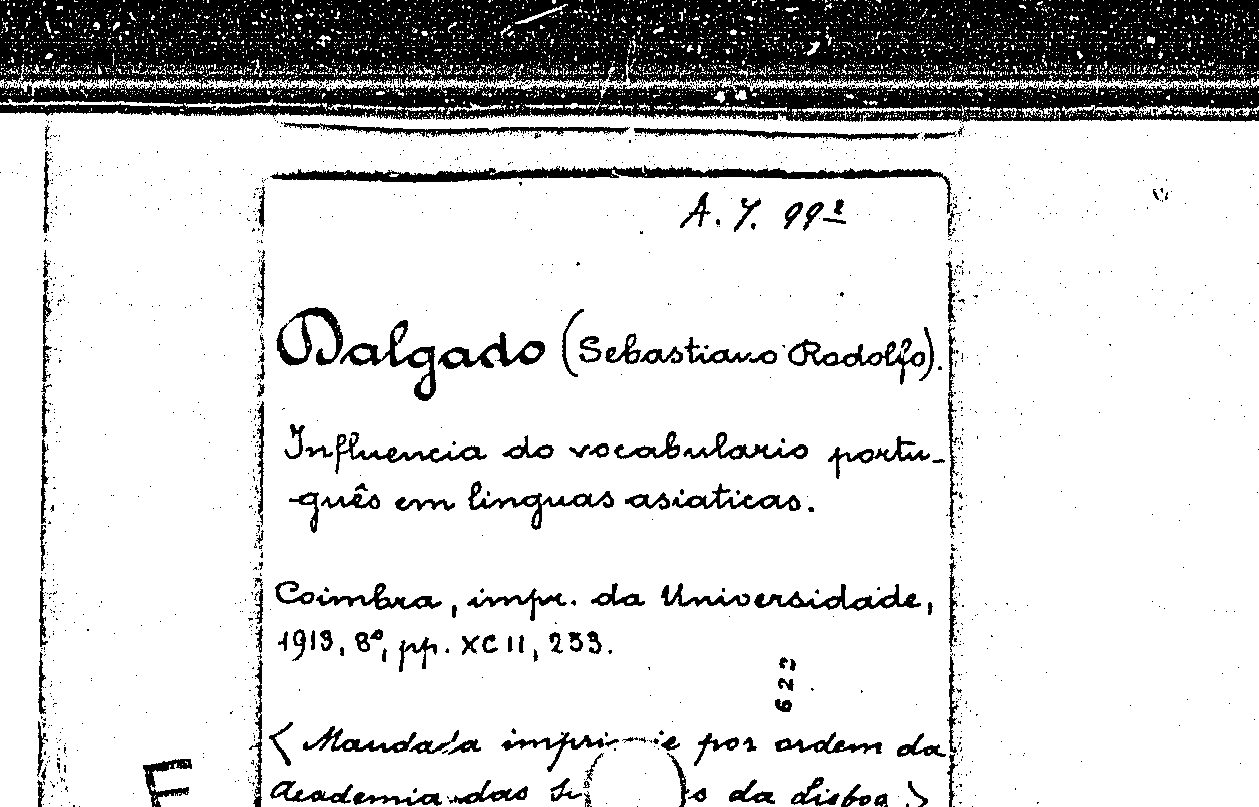 A. Y. 99²
Dalgado (Sebastiano Rodolfo).
Influencia do vocabulario portu-
guês em linguas asiaticas.
Coimbra, impr. da Universidade,
1913, 8º, pp. XCII, 253.
622
< Mandada por ordem da
Academia das da Lisboa >
E